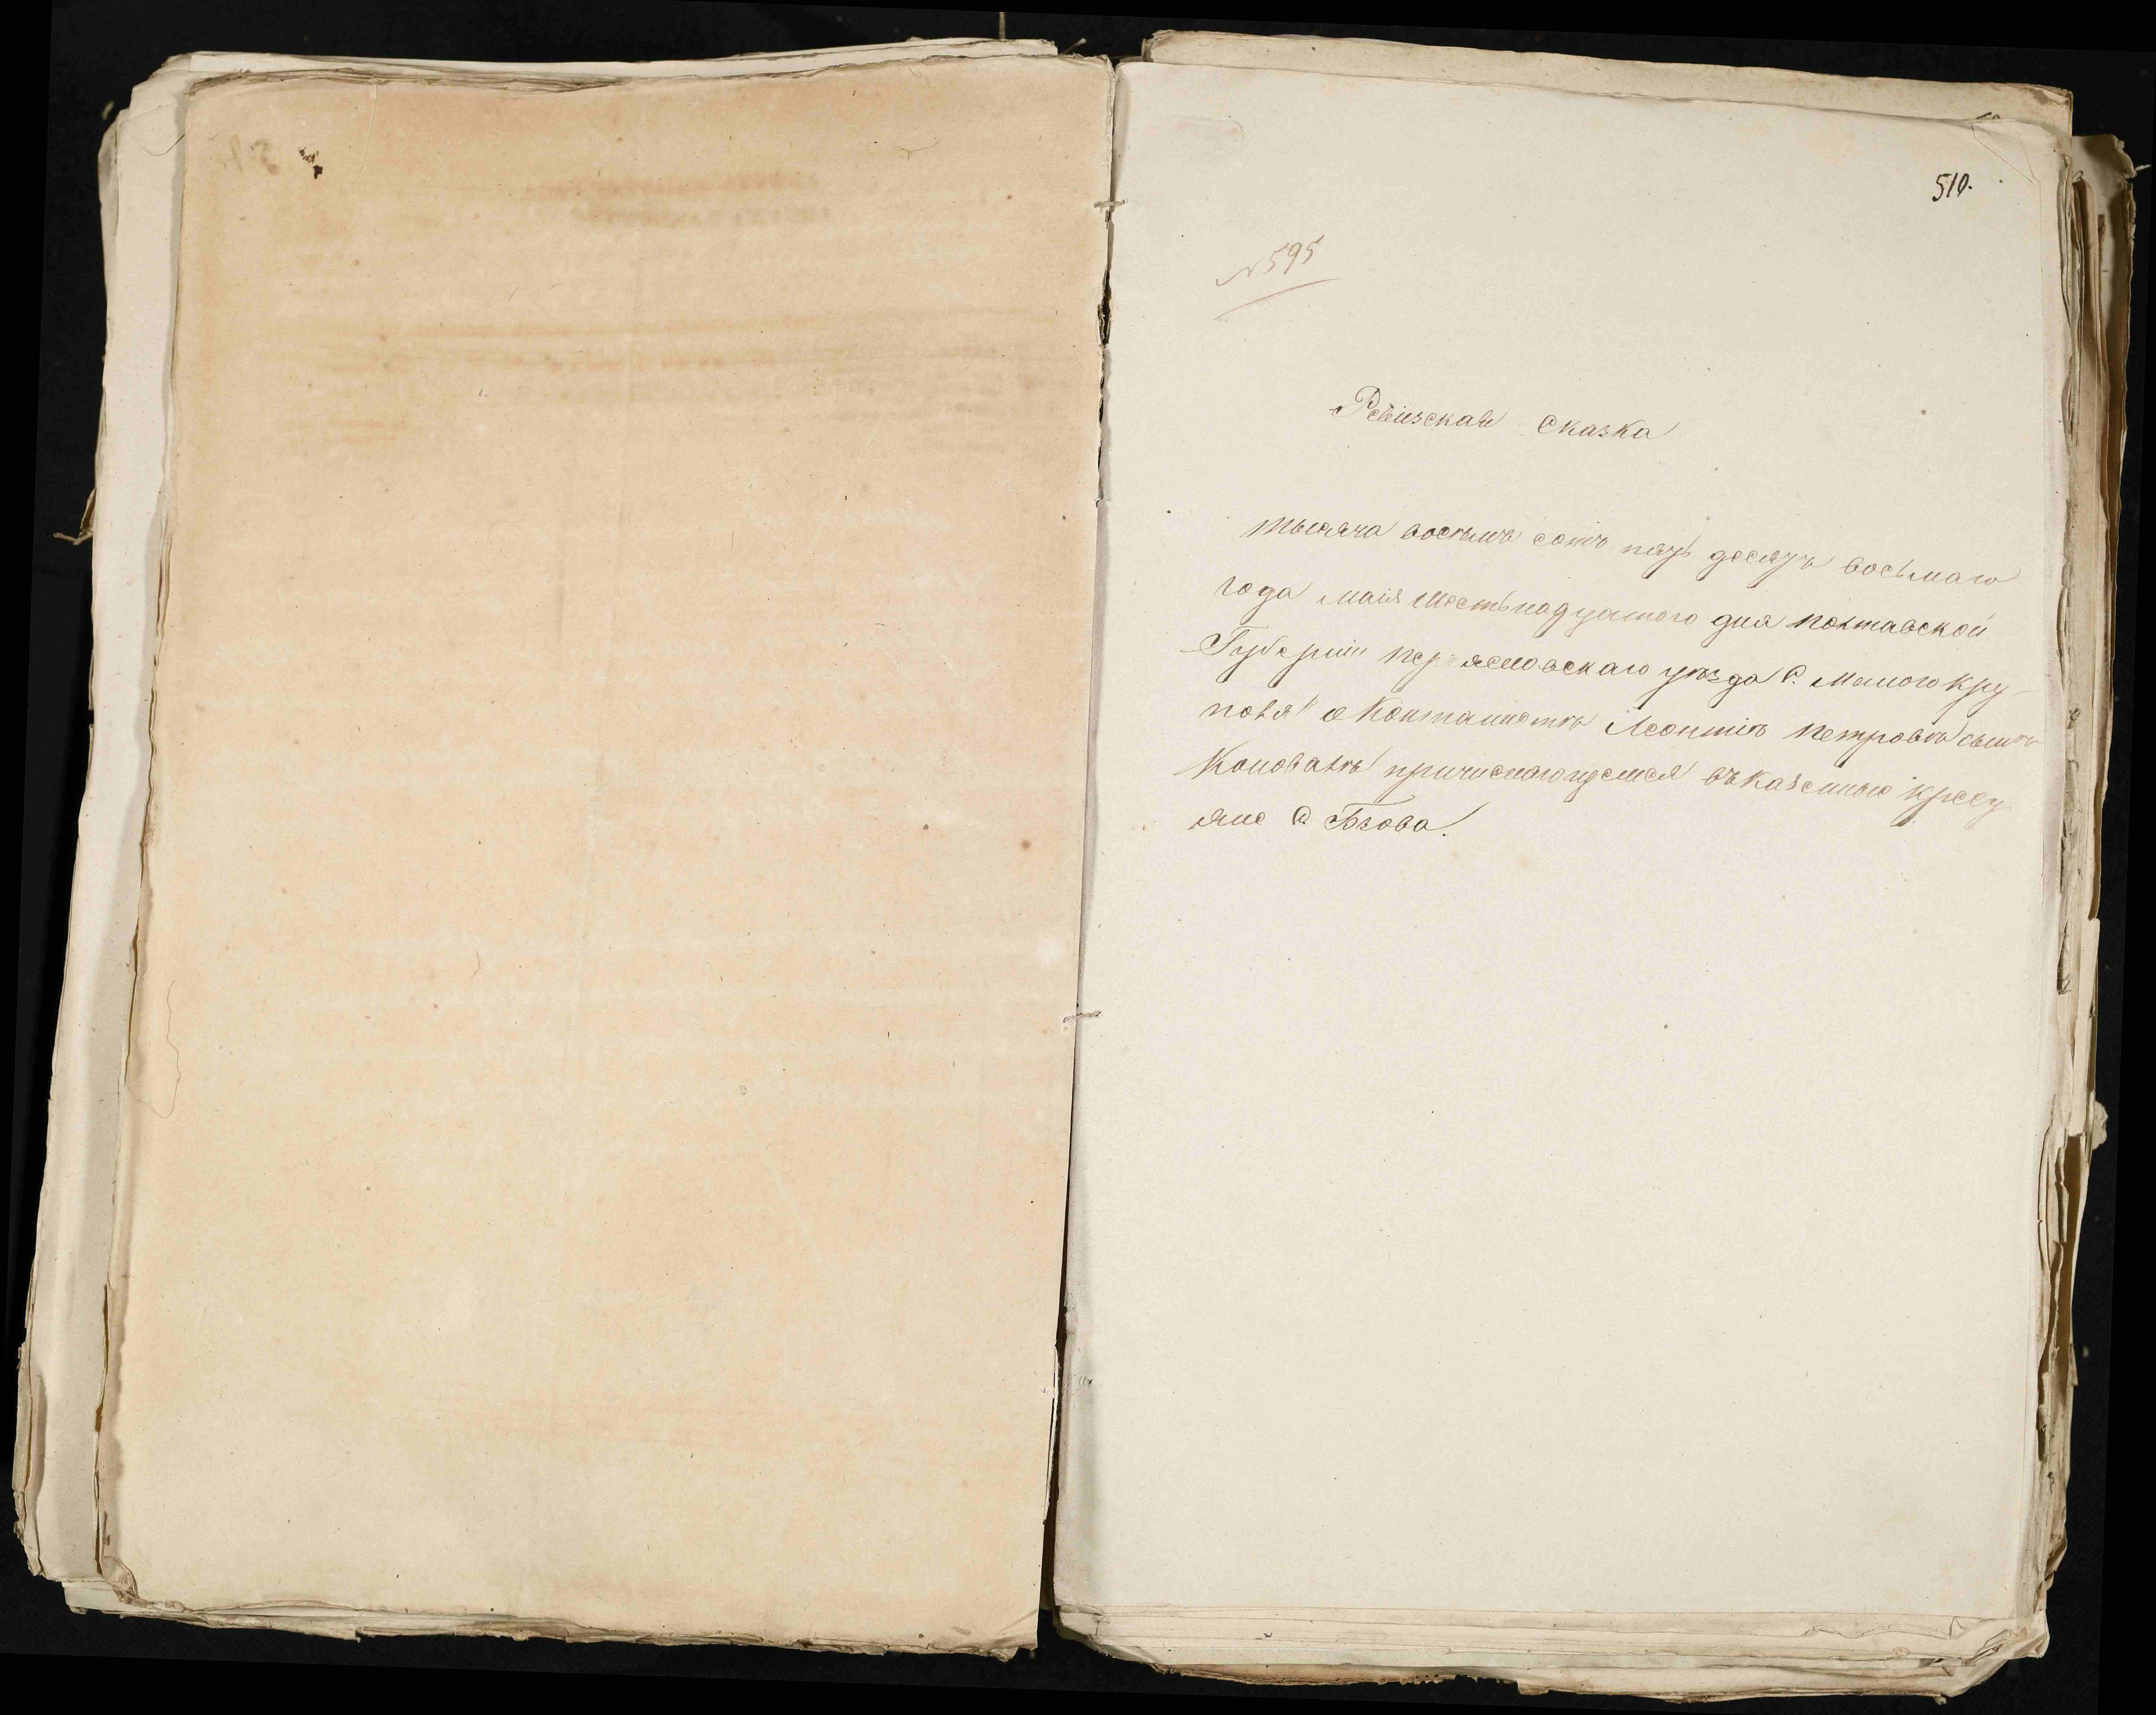 510.
№ 595
Ревизская Сказка
тысяча восѣмъ сотъ пязь десязъ восьмаго
года маія шестьнадцатого дня полтавской
Губерніи переясловскаго уѣзда С. Малого кру-
поля о Кантанистѣ Леонтіѣ петровѣ сынѣ
Коновалѣ причисляющемся въ казенные кресу
яне С. Бзова.